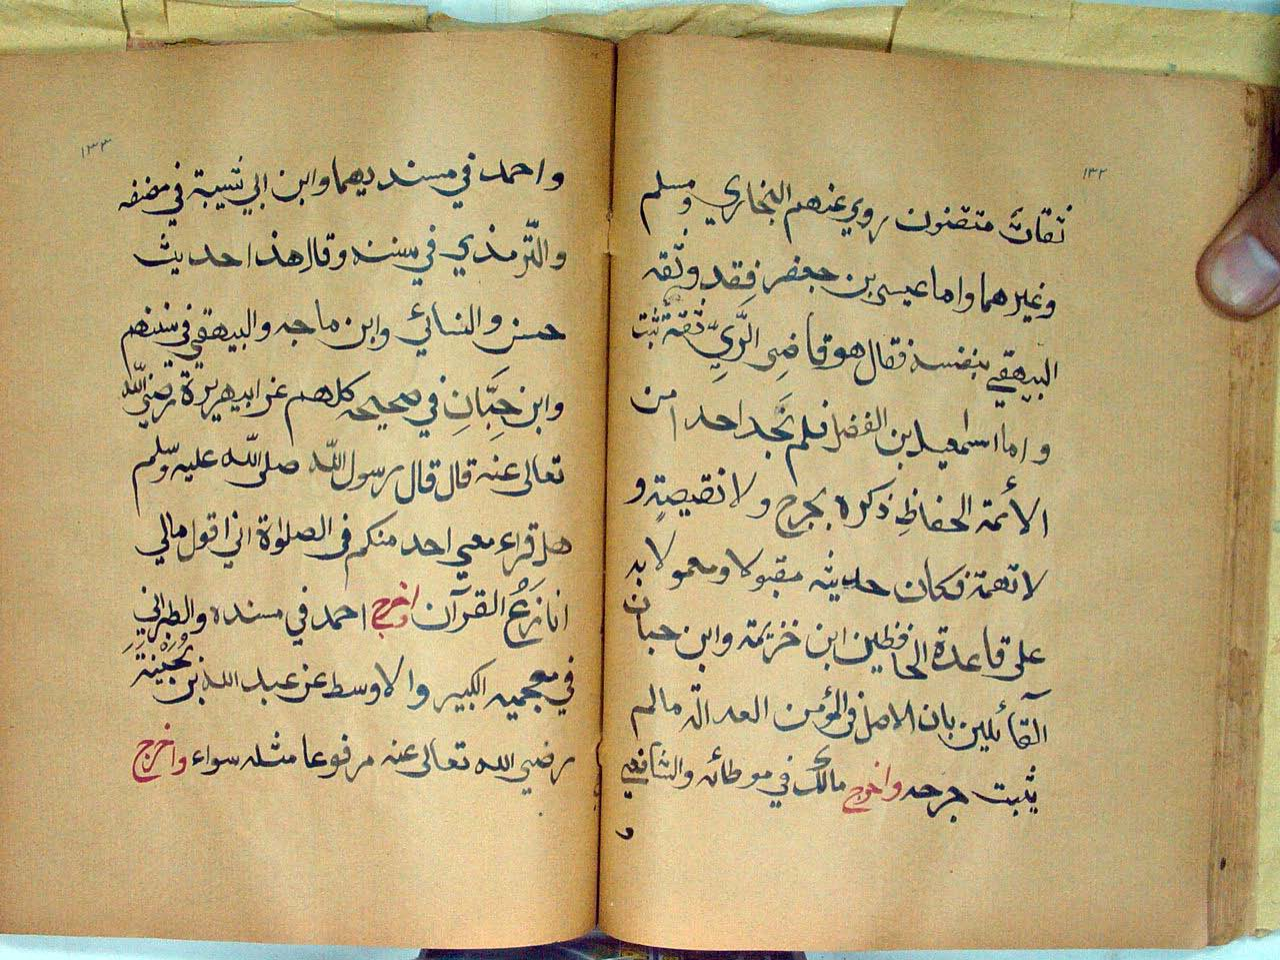 ١٣٢
ثقات متقنون روي عنهم البخاري ومسلم
وغيرهما واما عيسى بن جعفر فقد وثقه
البيهقي بنفسه فقال هو قاضي الرَّيِّ ثقة ثبت
واما اسمعيل بن الفضل فلم نجد احدا من
الأئمة الحفاظِ ذكره بجرح ولا نقيصةٍ و
لا تهمة فكان حديثه مقبولا ومعمولا به
على قاعدة الحافظين ابن خزيمة وابن حبان
القائلين بان الاصل في المؤمن العدالة مالم
يثبت جرحه واخرج مالك في موطائه والشافعي
و
١٣٣
واحمد في مسنديهما وابن ابي شيبة في مصنفه
والتّرمذي في سننه وقال هذا حديث
حسن والنسائي وابن ماجه والبيهقي في سننهم
وابن حِبَّانِ في صحيحه كلهم عن ابي هريرة رضي اللّه
تعالى عنه قال قال رسول اللّه صلى اللّه عليه وسّلم
هل قراء معي احد منكم فى الصلواة اني اقول مالي
انازعُ القرآن واخرج احمد في مسنده والطبراني
في معجميه الكبير والاوسط عن عبد الله بن بُحَيْنَةَ
رضي الله تعالى عنه مرفوعا مثله سواء واخرج